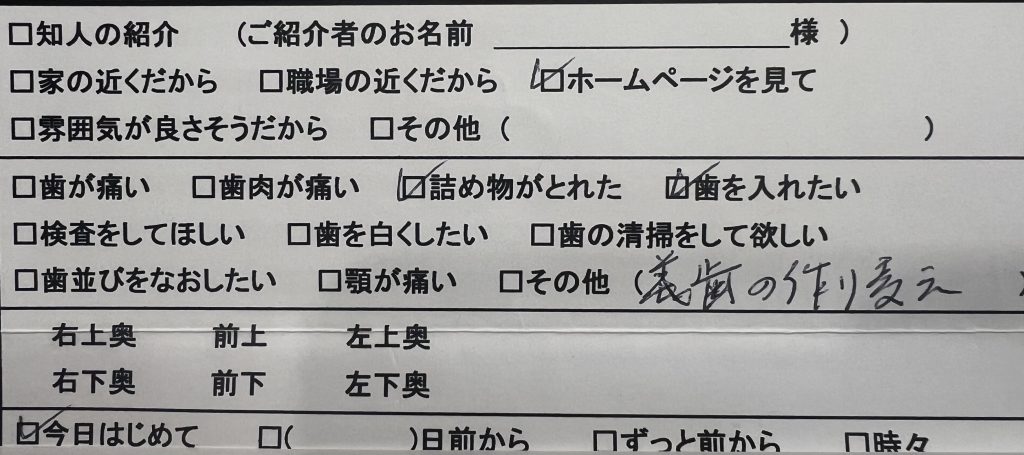 □知人の紹介 (ご紹介者のお名前 ____________________様 )
□家の近くだから □職場の近くだから ☑ホームページを見て
□雰囲気が良さそうだから □その他 ( )
□歯が痛い □歯肉が痛い ☑詰め物がとれた ☑歯を入れたい
□検査をしてほしい □歯を白くしたい □歯の清掃をして欲しい
□歯並びをなおしたい □顎が痛い □その他 (義歯の作り変え )
右上奥 前上 左上奥
右下奥 前下 左下奥
☑今日はじめて □( )日前から □ずっと前から □時々